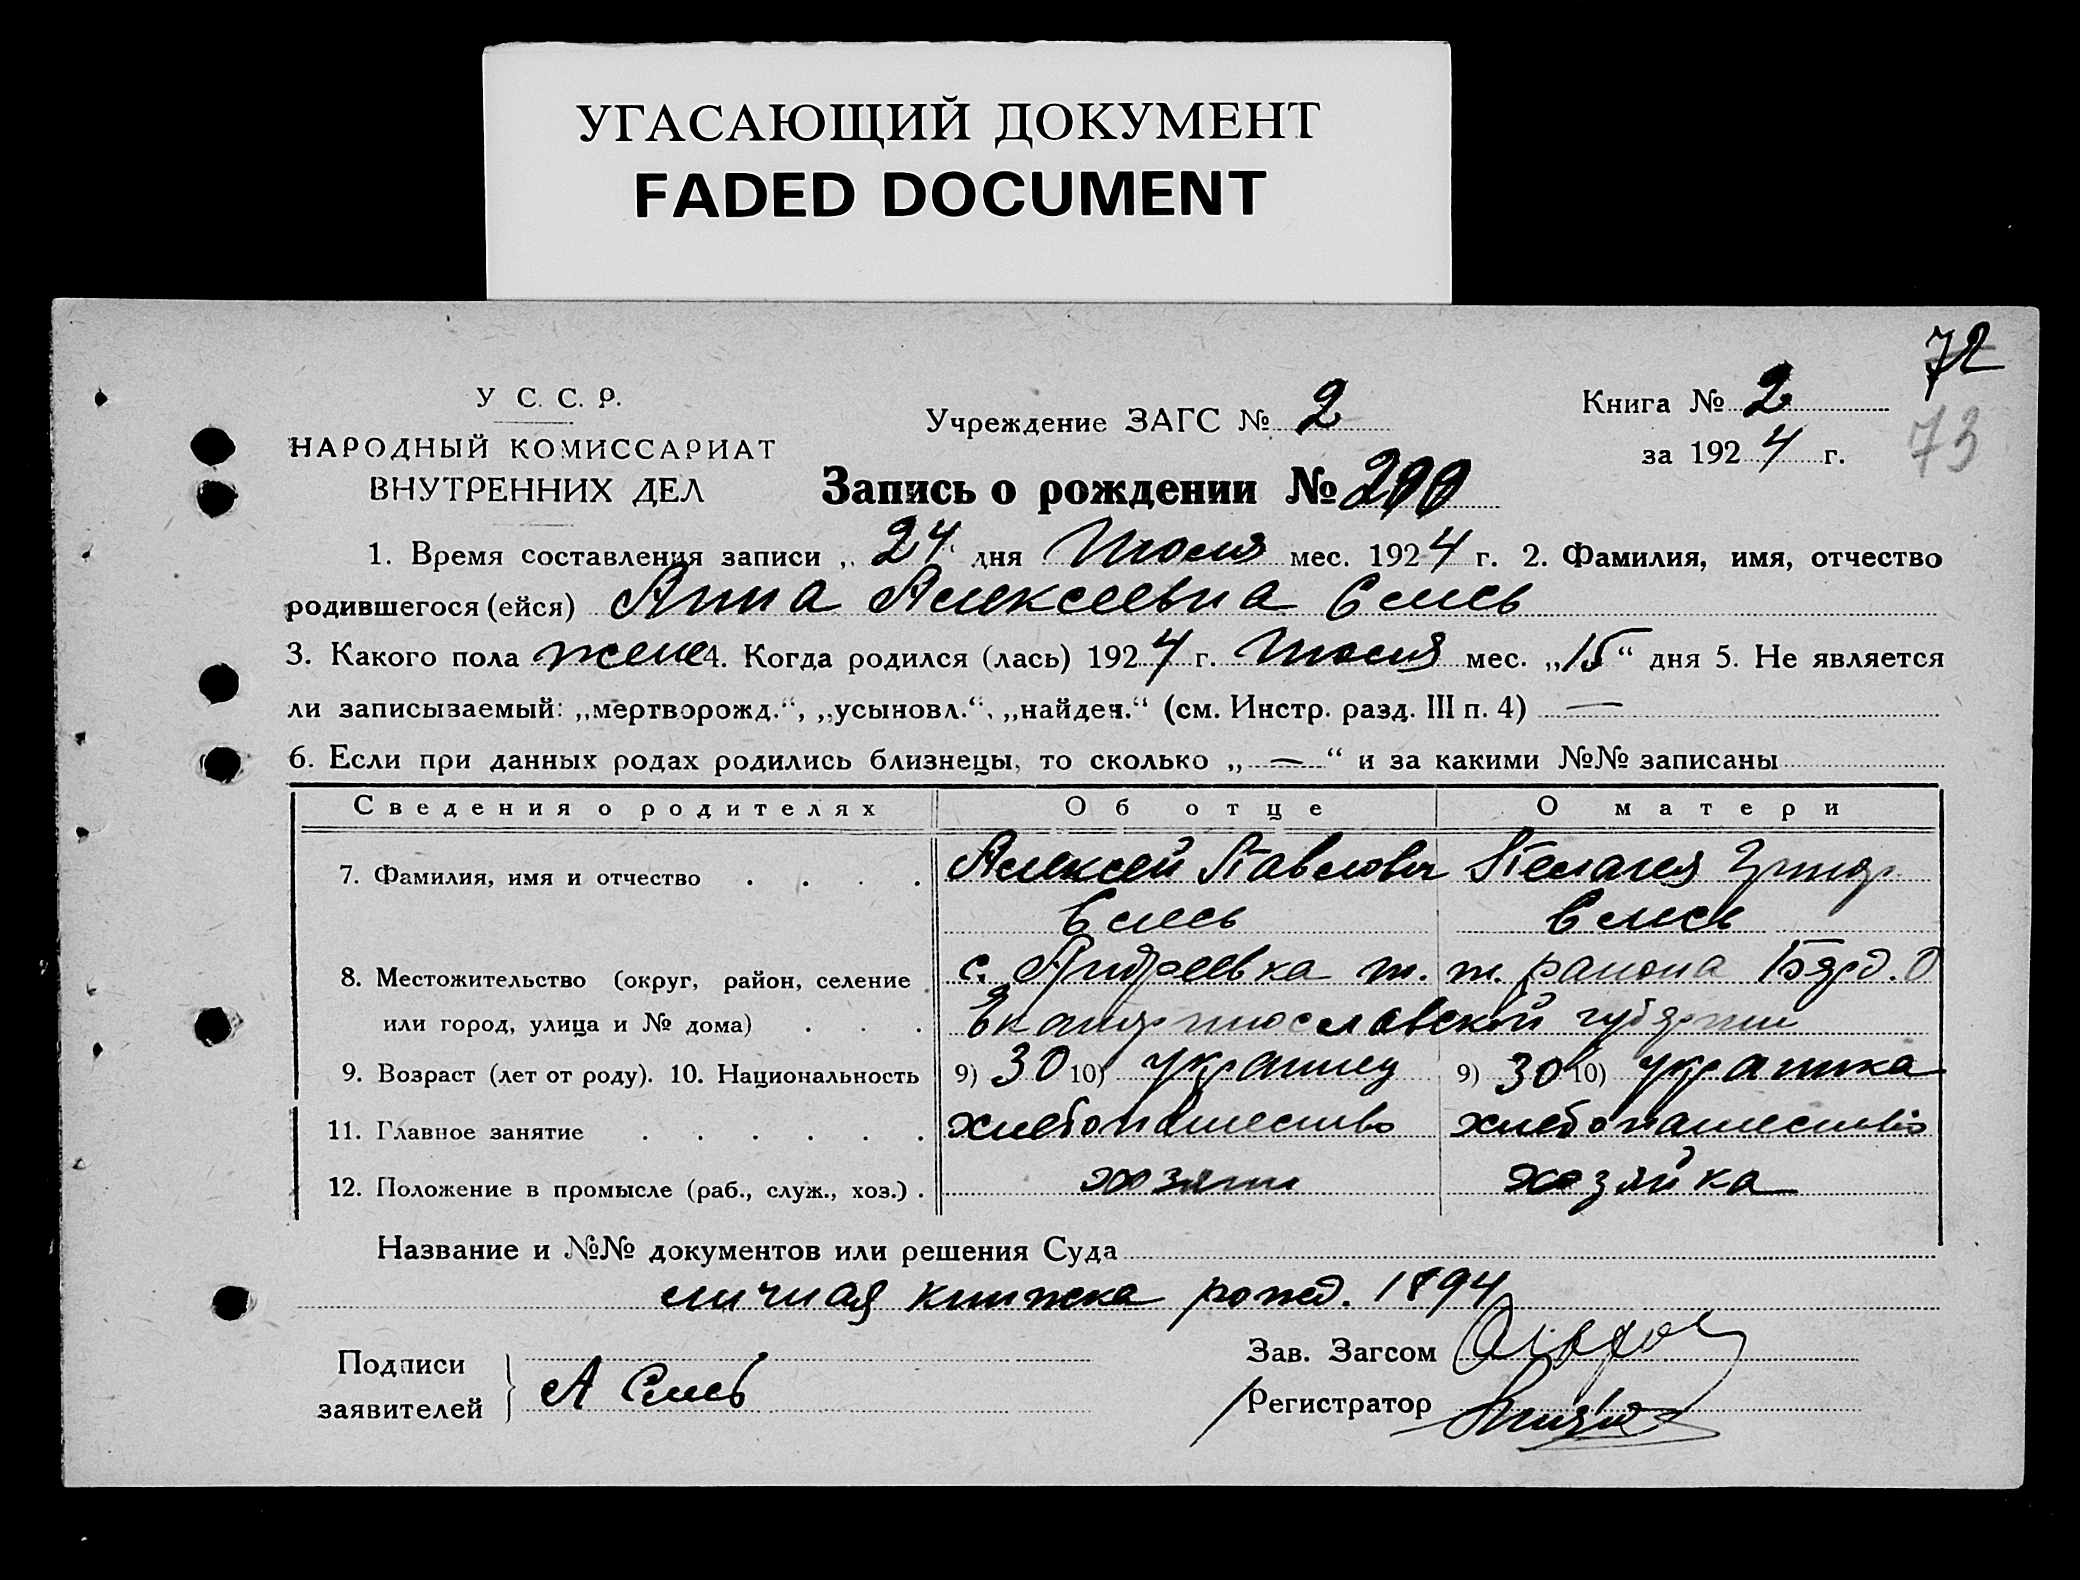 УГАСАЮЩИЙ ДОКУМЕНТ
FADED DOCUMENT
72
73
У С. С. Р.
НАРОДНЫЙ КОМИССАРИАТ
ВНУТРЕННИХ ДЕЛ
Учреждение ЗАГС № 2
Книга № 2
за 1924 г.
Запись о рождении № 200
1. Время составления записи „ 24 дня Июля мес. 1924 г. 2. Фамилия, имя, отчество
родившегося (ейся) Анна Алексеевна Емец
3. Какого пола жене 4. Когда родился (лась) 1924 г. Июля мес. „15“ дня 5. Не является
ли записываемый: „мертворожд.“, „усыновл.“, „найден.“ (см. Инстр. разд. III п. 4) —
6. Если при данных родах родились близнецы, то сколько „—“ и за какими №№ записаны
Сведения о родителях Об отце О матери
7. Фамилия, имя и отчество Алексей Павлович Пелагея Григор
8. Местожительство (округ, район, селение с. Андреевка района Бярд. О
или город, улица и № дома) Екатеринославской губернии
9. Возраст (лет от роду). 10. Национальность 9) 30 10) украинец 9) 30 10) украинка
11. Главное занятие хлебопашество хлебопашество
12. Положение в промысле (раб., служ., хоз.) хозяин хозяйка
Название и №№ документов или решения Суда
личная книжка рожд. 1894
Подписи
заявителей А
Зав. Загсом
Регистратор